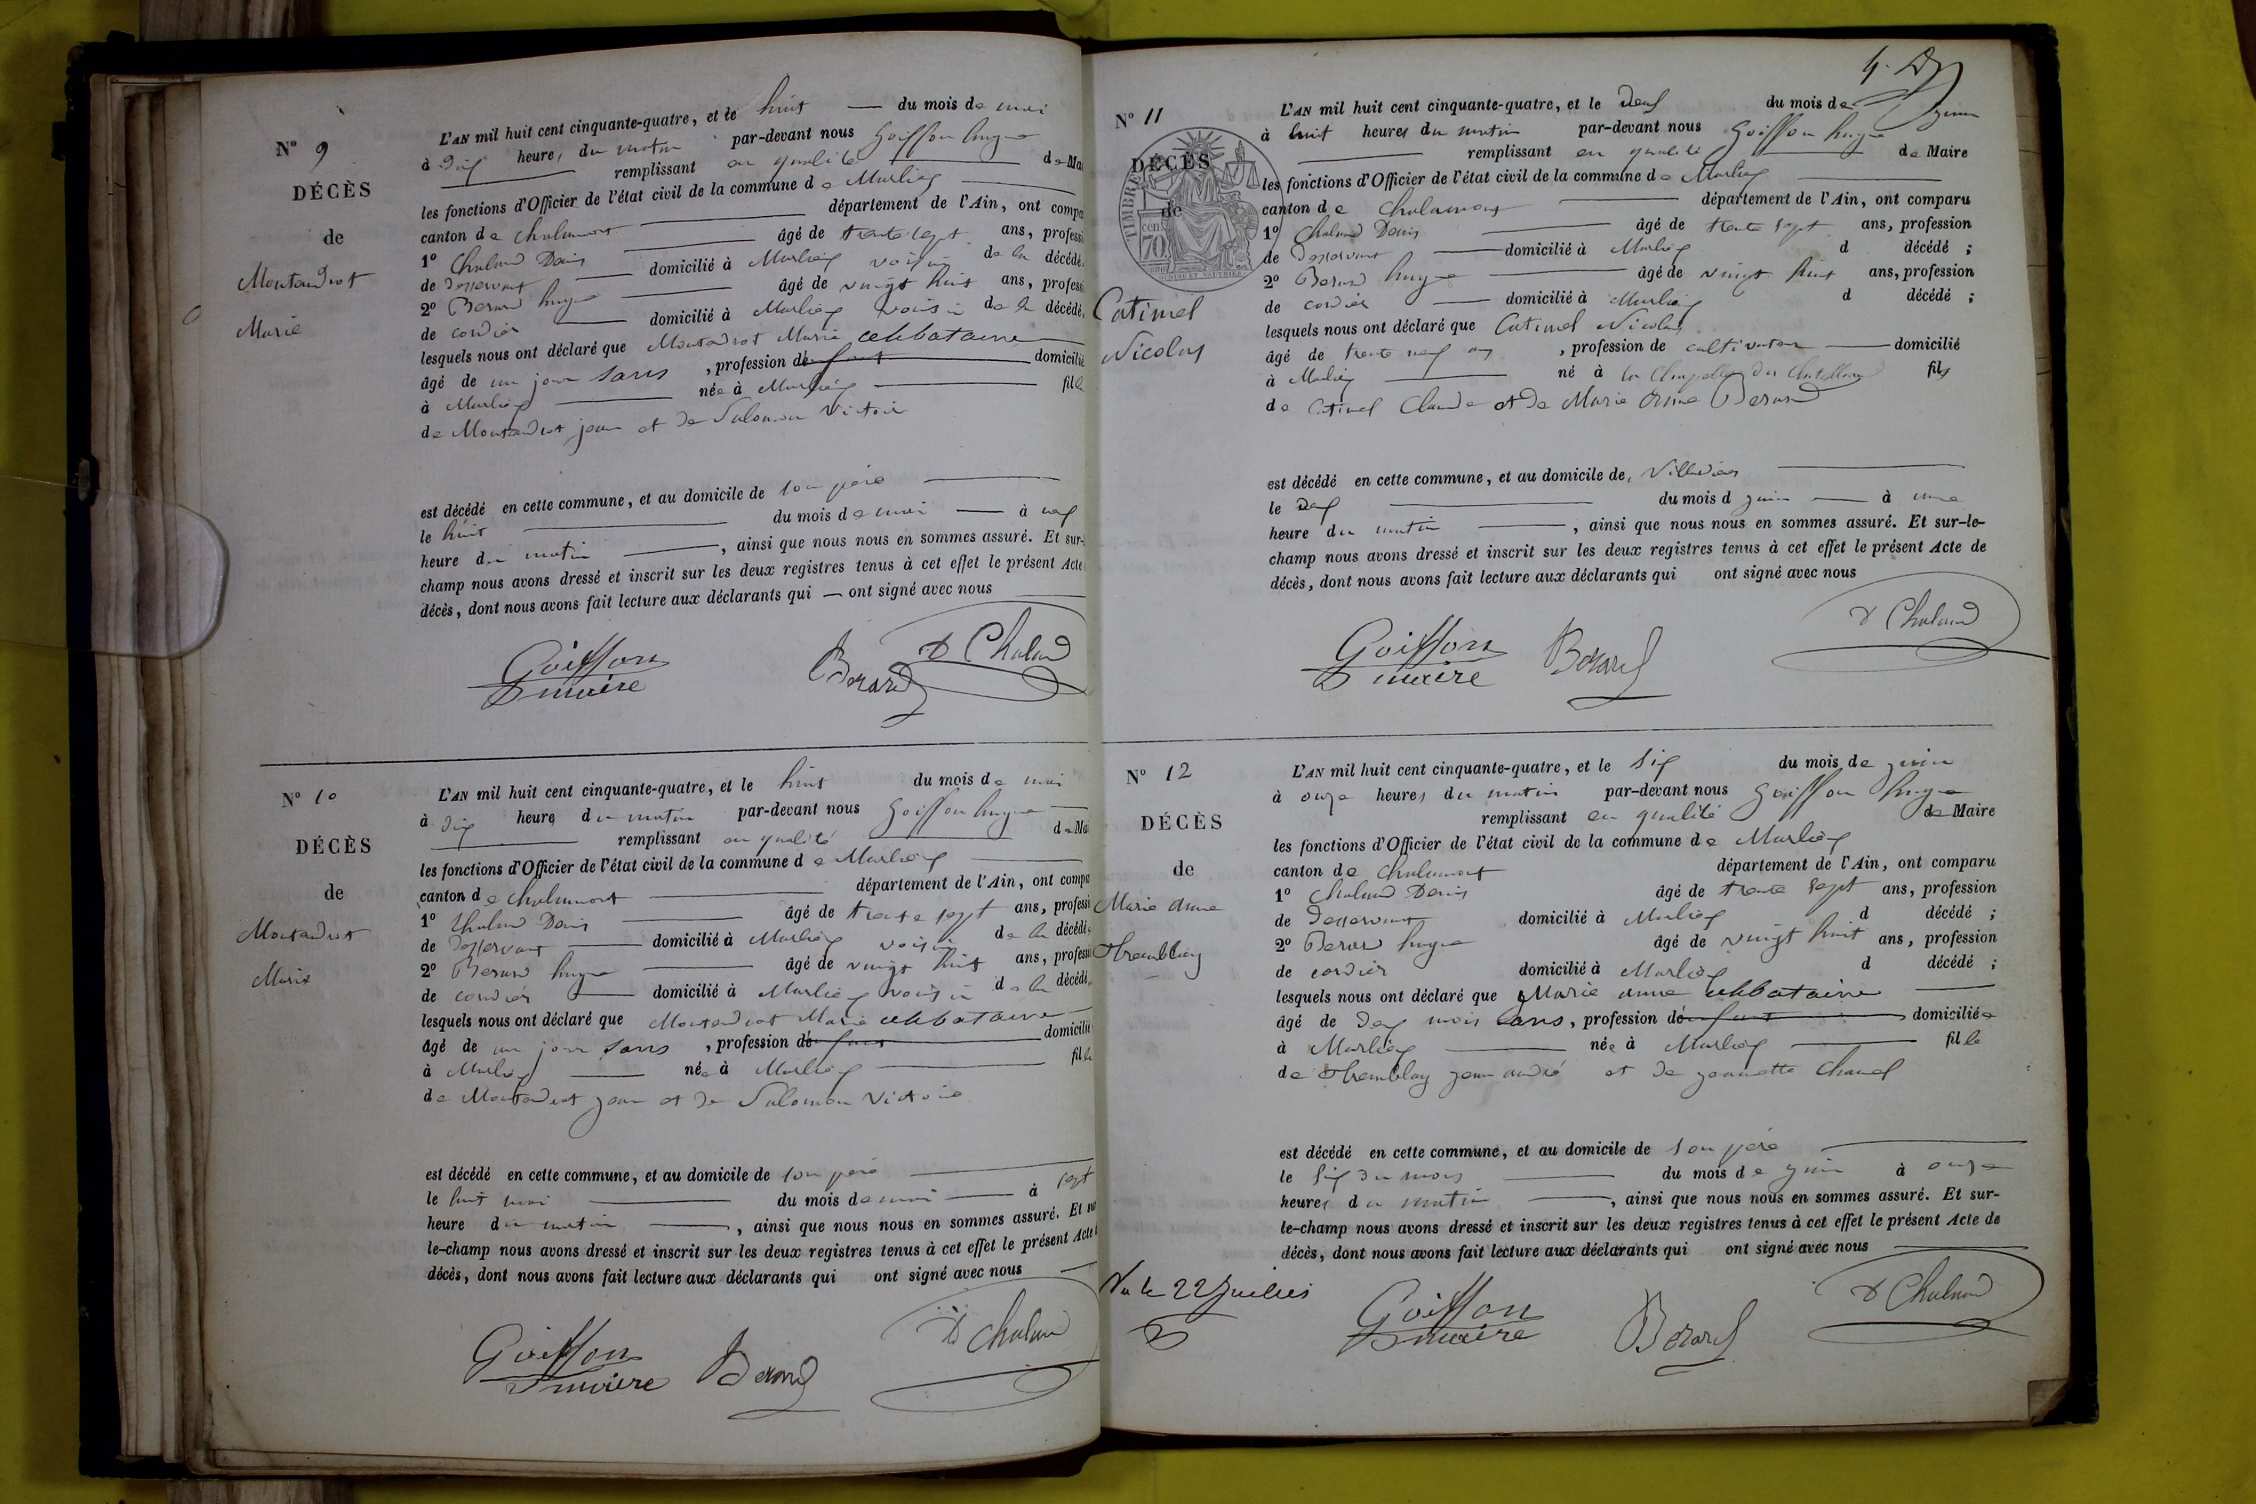 N° 9
DÉCÈS
de
Montandrot
Marie
L'AN mil huit cent cinquante-quatre, et le huit du mois de mai
à dix heures du matin par-devant nous Goiffon hugue
remplissant en qualité de Ma
les fonctions d'Officier de l'état civil de la commune de Marlieux
canton de Chalamont département de l'Ain, ont compa
1° Chaland Denis âgé de trente sept ans, professi
de desservant domicilié à Marlieux voisin de la décédé
2° Berard hugue âgé de vingt huit ans, professi
de cordier domicilié à Marlieux voisin de la décédé,
lesquels nous ont déclaré que Montandrot Marie celibataire
âgé de un jour sans , profession de domicilié
à Marlieux née à Marlieux fille
de Montandrot jean et de Salomon Victoire
est décédé en cette commune, et au domicile de son père
le huit du mois de mai à neuf
heure du matin , ainsi que nous nous en sommes assuré. Et sur-
champ nous avons dressé et inscrit sur les deux registres tenus à cet effet le présent Acte
décès, dont nous avons fait lecture aux déclarants qui ont signé avec nous
Goiffon Berard D Chaland
maire
N° 10
DÉCÈS
de
Montandrot
Marie
L'AN mil huit cent cinquante-quatre, et le huit du mois de mai
à dix heure du matin par-devant nous Goiffon hugue
remplissant en qualité de Ma
les fonctions d'Officier de l'état civil de la commune de Marlieux
canton de Chalamont département de l'Ain, ont compa
1° Chaland Denis âgé de trente sept ans, professi
de desservant domicilié à Marlieux voisin de la décédé,
2° Berard hugue âgé de vingt huit ans, professi
de cordier domicilié à Marlieux voisin de la décédé,
lesquels nous ont déclaré que Montandrot Marie celibataire
âgé de un jour sans , profession de domicilié
à Marlieux née à Marlieux fille
de Montandrot jean et de Salomon Victoire
est décédé en cette commune, et au domicile de son père
le huit mai du mois de mai à sept
heure du matin , ainsi que nous nous en sommes assuré. Et sur
le-champ nous avons dressé et inscrit sur les deux registres tenus à cet effet le présent Acte
décès, dont nous avons fait lecture aux déclarants qui ont signé avec nous
Goiffon Berard D Chaland
maire
4.
N° 11
DÉCÈS
de
TIMBRE
cen
70
Catimel
Nicolas
L'AN mil huit cent cinquante-quatre, et le deux du mois de juin
à huit heures du matin par-devant nous Goiffon hugue
remplissant en qualité de Maire
les fonctions d'Officier de l'état civil de la commune de Marlieux
canton de Chalamont département de l'Ain, ont comparu
1° Chaland Denis âgé de trente sept ans, profession
de desservant domicilié à Marlieux d décédé ;
2° Berard hugue âgé de vingt huit ans, profession
de cordier domicilié à Marlieux d décédé ;
lesquels nous ont déclaré que Catimel Nicolas
âgé de trente neuf ans , profession de cultivateur domicilié
à Marlieux né à la Chapelle du Chatelard fils
de Catimel Claude et de Marie Anne Berard
est décédé en cette commune, et au domicile de, Villardier
le deux du mois d juin à une
heure du matin , ainsi que nous nous en sommes assuré. Et sur-le-
champ nous avons dressé et inscrit sur les deux registres tenus à cet effet le présent Acte de
décès, dont nous avons fait lecture aux déclarants qui ont signé avec nous
Goiffon Berard D Chaland
maire
N° 12
DÉCÈS
de
Marie Anne
Trembley
L'AN mil huit cent cinquante-quatre, et le six du mois de juin
à onze heures du matin par-devant nous Goiffon hugue
remplissant en qualité de Maire
les fonctions d'Officier de l'état civil de la commune de Marlieux
canton de Chalamont département de l'Ain, ont comparu
1° Chaland Denis âgé de trente sept ans, profession
de desservant domicilié à Marlieux d décédé ;
2° Berard hugue âgé de vingt huit ans, profession
de cordier domicilié à Marlieux d décédé ;
lesquels nous ont déclaré que Marie anne celibataire
âgé de deux mois sans, profession de domiciliée
à Marlieux née à Marlieux fille
de Trembley jean andré et de jeannette Chanel
est décédé en cette commune, et au domicile de son père
le six du mois du mois de juin à onze
heures du matin , ainsi que nous nous en sommes assuré. Et sur-
le-champ nous avons dressé et inscrit sur les deux registres tenus à cet effet le présent Acte de
décès, dont nous avons fait lecture aux déclarants qui ont signé avec nous
Vu le 22 Juillet
Goiffon Berard D Chaland
maire